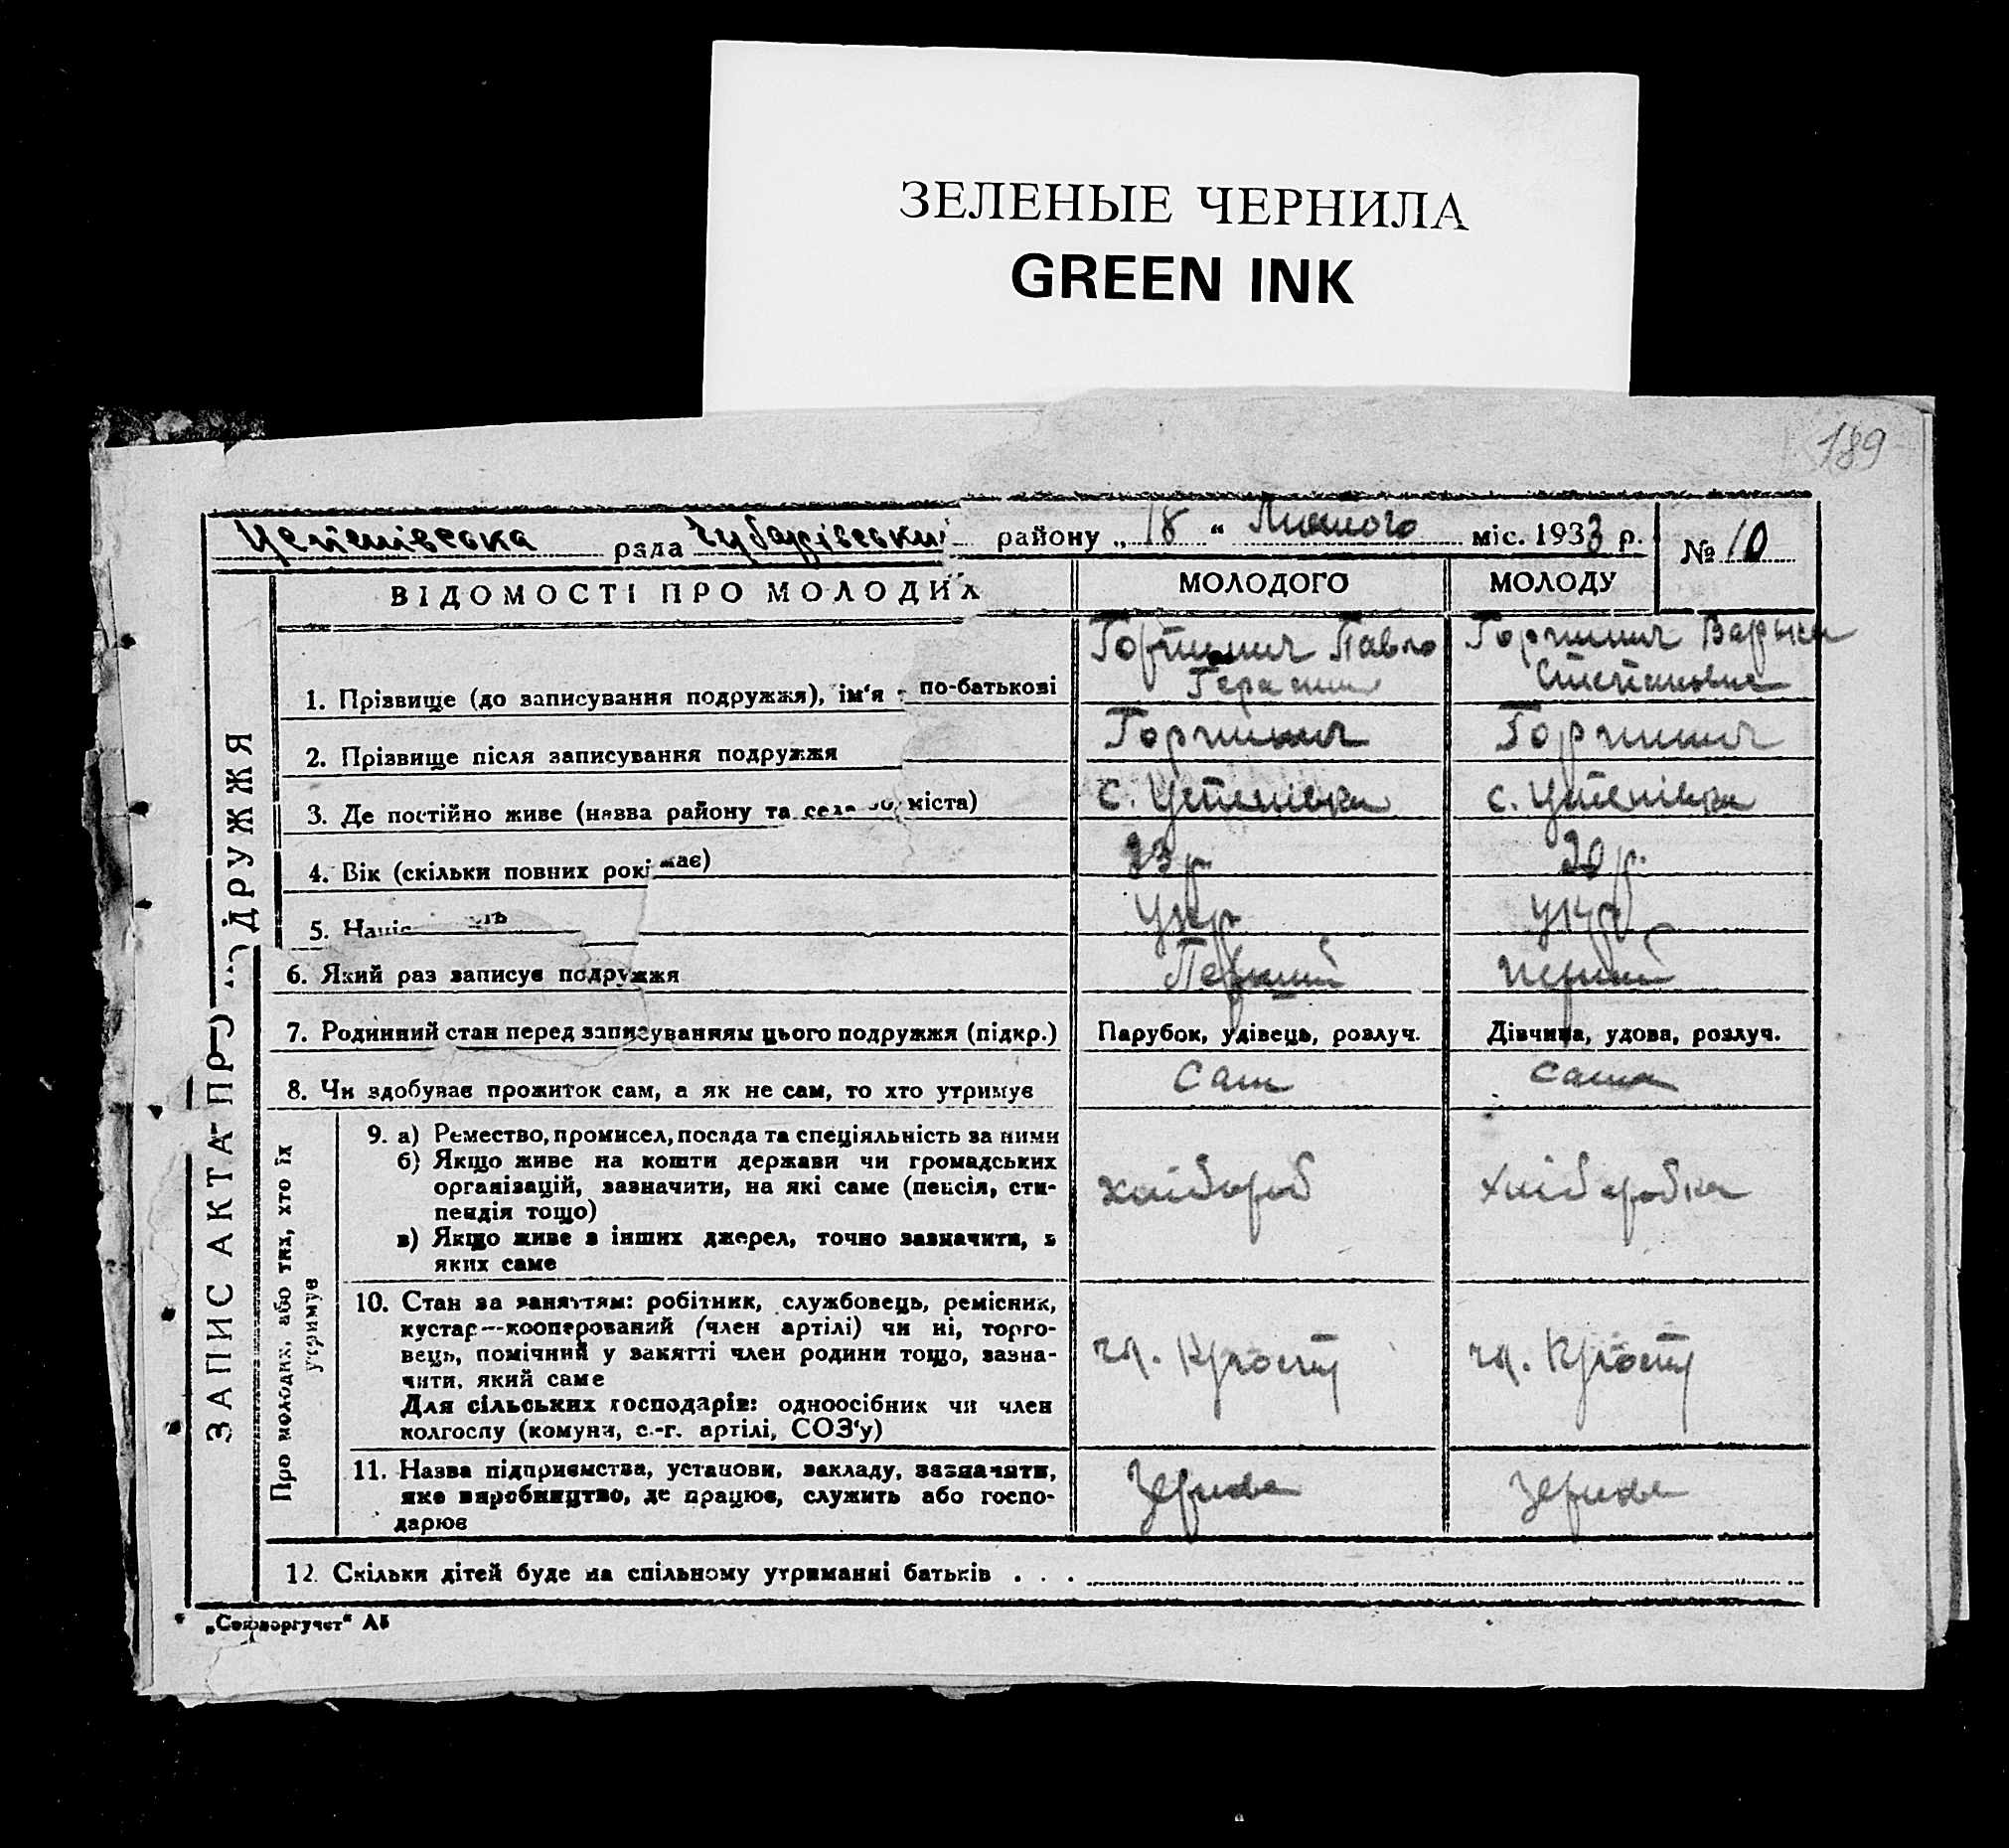 ЗЕЛЕНЫЕ ЧЕРНИЛА
GREEN INK
189
Успенівська рада Чубарівський району „18“ Лютого міс. 1933 р. № 10
ВІДОМОСТІ ПРО МОЛОДИХ МОЛОДОГО МОЛОДУ
ЗАПИС АКТА ПРО ПОДРУЖЖЯ
1. Прізвище (до записування подружжя), ім'я по-батькові Горпинич Павло Горпинич
Степановна
2. Прізвище після записування подружжя Горпинич Горпинич
3. Де постійно живе (назва району та села міста) с. Успенівка с. Успенівка
4. Вік (скільки повних рокі має) 23 р 20 р.
5. Наці ть Укр укр
6. Який раз записує подружжя Перший перший
7. Родинний стан перед записуванням цього подружжя (підкр.) Парубок, удівець, розлуч. Дівчина, удова, розлуч.
8. Чи здобував прожиток сам, а як не сам, то хто утримує Сам сама
Про молодих, або тих, хто їх
утримує
9. а) Ремество, промисел, посада та спеціяльність за ними
б) Якщо живе на кошти держави чи громадських
організацій, зазначити, на які саме (пенсія, сти-
пендія тощо)
в) Якщо живе з інших джерел, точно зазначити, з
яких саме
хлібороб хліборобка
10. Стан за заняттям: робітник, службовець, ремісник,
кустар—кооперований (член артілі) чи ні, торго-
вець, помічний у занятті член родини тощо, зазна-
чити, який саме
Для сільських господарів: одноосібник чи член
колгоспу (комуни, с.-г. артілі, СОЗ'у)
11. Назва підприємства, установи, закладу, зазначити,
яке виробництво, де працює, служить або госпо-
дарює
12. Скільки дітей буде на спільному утриманні батьків . . .
„Союзоргучет“ АБ